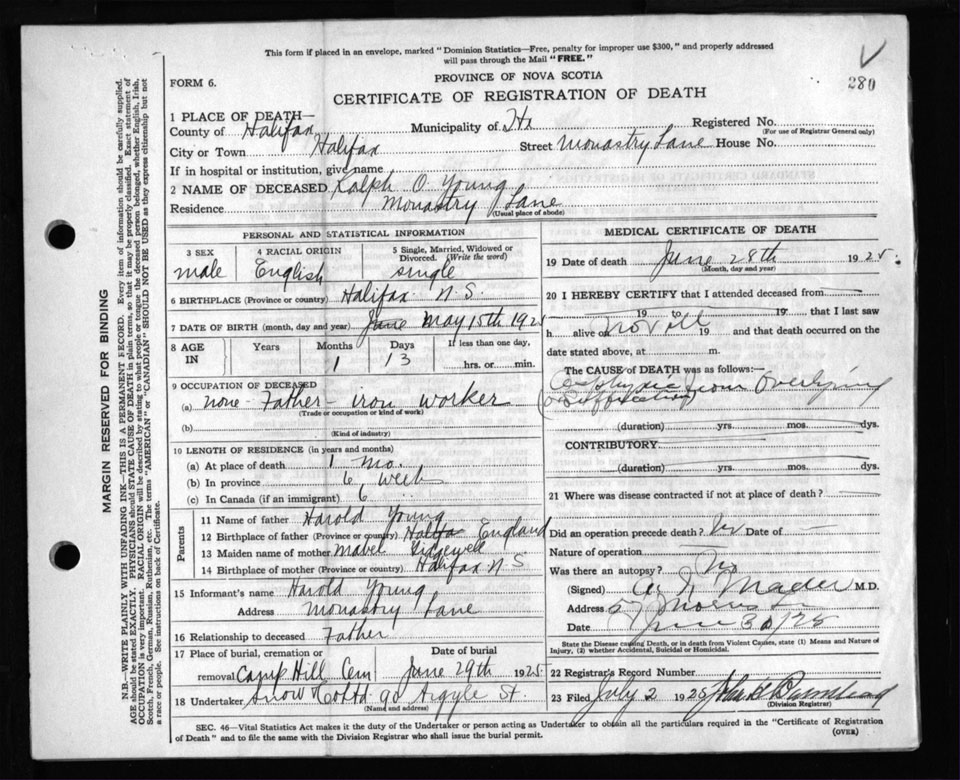 This form if placed in an envelope, marked "Dominion Statistics—Free, penalty for improper use $300," and properly addressed
will pass through the Mail "FREE."
280
FORM 6.
PROVINCE OF NOVA SCOTIA
CERTIFICATE OF REGISTRATION OF DEATH
1 PLACE OF DEATH—
County of Halifax Municipality of Hx Registered No.
(For use of Registrar General only)
City or Town Halifax Street Monastry Lane House No.
If in hospital or institution, give name
2 NAME OF DECEASED Ralph O Young
Residence Monastry Lane
(Usual place of abode)
PERSONAL AND STATISTICAL INFORMATION
3 SEX 4 RACIAL ORIGIN 5 Single, Married, Widowed or
Divorced. (Write the word)
male English single
6 BIRTHPLACE (Province or country) Halifax N.S.
7 DATE OF BIRTH (month, day and year) June May 15th 1925
8 AGE IN Years Months Days If less than one day,
1 13 hrs. or min.
9 OCCUPATION OF DECEASED
(a) none - Father - iron worker
(Trade or occupation or kind of work)
(b)
(Kind of industry)
10 LENGTH OF RESIDENCE (in years and months)
(a) At place of death 1 mo.
(b) In province 6 week
(c) In Canada (if an immigrant) 6
Parents
11 Name of father Harold Young
12 Birthplace of father (Province or country) England
13 Maiden name of mother Mabel Sidgewell
14 Birthplace of mother (Province or country) Halifax N S
15 Informant's name Harold Young
Address Monastry Lane
16 Relationship to deceased Father
17 Place of burial, cremation or Date of burial
removal Camp Hill Cem June 29th 1925
18 Undertaker Snow & Co Ltd 90 Argyle St.
(Name and address)
MEDICAL CERTIFICATE OF DEATH
19 Date of death June 28th 1925
(Month, day and year)
20 I HEREBY CERTIFY that I attended deceased from
19 to 19 that I last saw
h alive on not at all 19 and that death occurred on the
date stated above, at m.
The CAUSE OF DEATH was as follows:
Asphyxia from Overlying
(or Suffocation)
(duration) yrs. mos. dys.
CONTRIBUTORY
(duration) yrs. mos. dys.
21 Where was disease contracted if not at place of death?
Did an operation precede death? No Date of
Nature of operation
Was there an autopsy? No
(Signed) Mader M.D.
Address 57 Morris St
Date June 30/25
State the Disease causing Death, or in death from Violent Causes, state (1) Means and Nature of
Injury, (2) whether Accidental, Suicidal or Homicidal.
22 Registrar's Record Number
23 Filed July 2 1925
(Division Registrar)
SEC. 46—Vital Statistics Act makes it the duty of the Undertaker or person acting as Undertaker to obtain all the particulars required in the "Certificate of Registration
of Death" and to file the same with the Division Registrar who shall issue the burial permit.
(OVER)
MARGIN RESERVED FOR BINDING
N.B.—WRITE PLAINLY WITH UNFADING INK—THIS IS A PERMANENT RECORD. Every item of information should be carefully supplied.
AGE should be stated EXACTLY. PHYSICIANS should STATE CAUSE OF DEATH in plain terms, so that it may be properly classified. Exact statement of
OCCUPATION is very important. RACIAL ORIGIN will be described by stating to what people or tongue the deceased person belonged, whether English, Irish,
Scotch, French, German, Russian, Ruthenian, etc. The terms "AMERICAN" or "CANADIAN" SHOULD NOT BE USED as they express citizenship but not
a race or people. See instructions on back of Certificate.